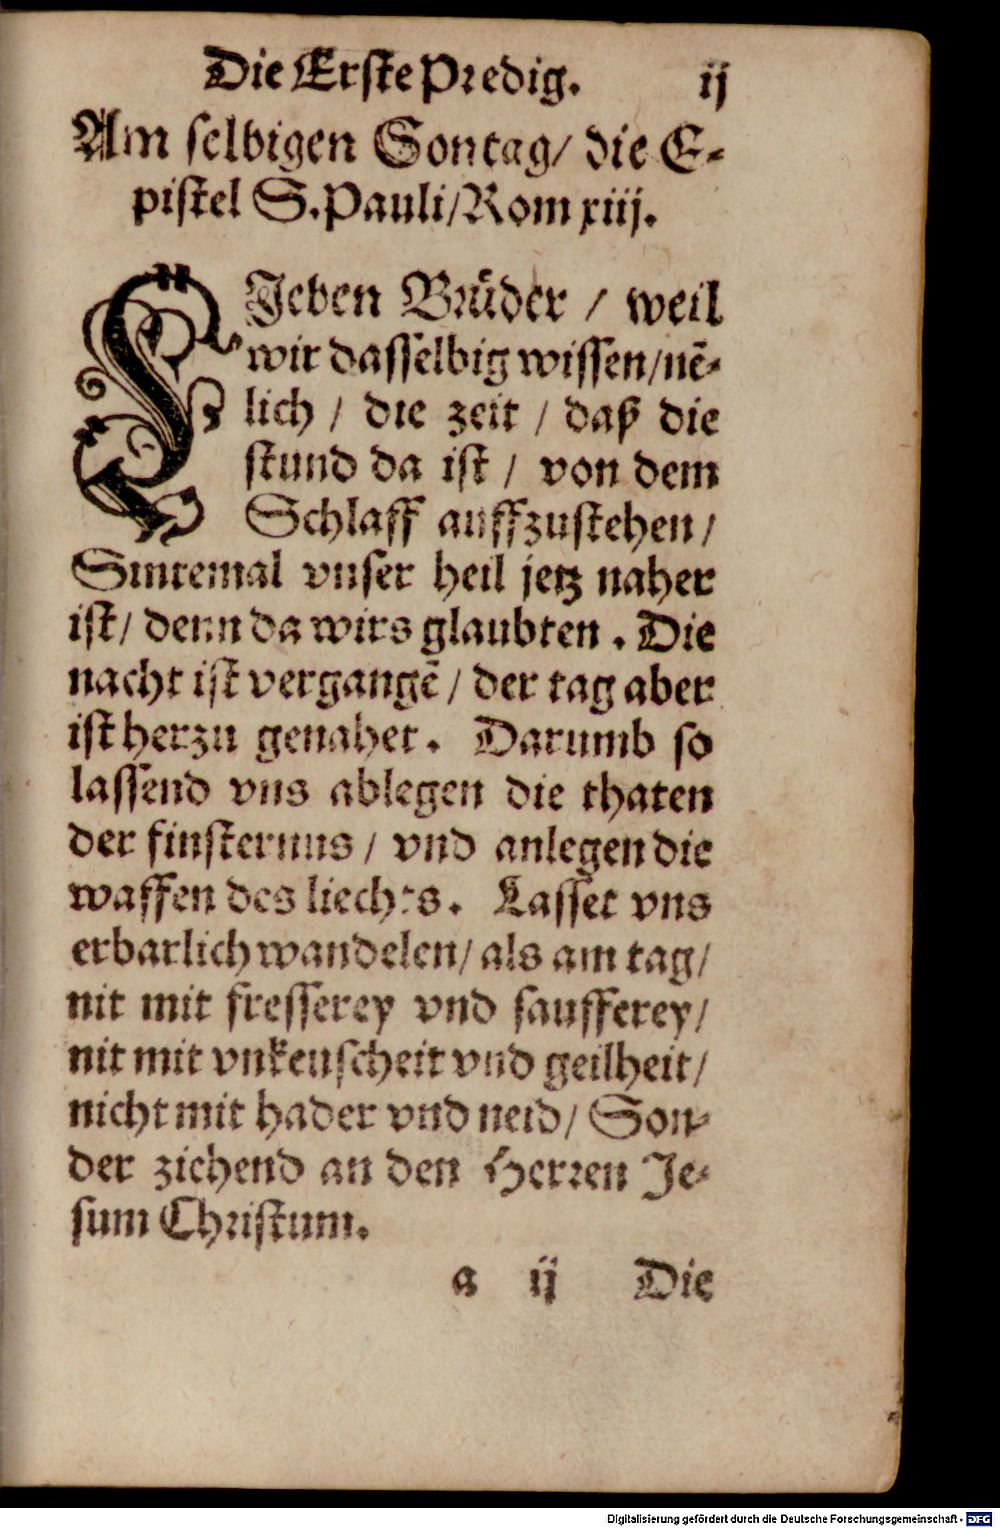 Die Erste Predig. ij
Am selbigen Sontag/ die E-
pistel S. Pauli/ Rom xiij.
LJeben Brüder / weil
wir dasselbig wissen/ nē-
lich / die zeit / daß die
stund da ist / von dem
Schlaff auffzustehen /
Sintemal vnser heil jetz naher
ist/ denn da wirs glaubten. Die
nacht ist vergangē / der tag aber
ist herzu genahet. Darumb so
lassend vns ablegen die thaten
der finsternus / vnd anlegen die
waffen des liechts. Lasset vns
erbarlich wandelen/ als am tag/
nit mit fresserey vnd saufferey/
nit mit vnkeuscheit vnd geilheit/
nicht mit hader vnd neid/ Son-
der ziehend an den Herren Je-
sum Christum.
a ij Die
Digitalisierung gefördert durch die Deutsche Forschungsgemeinschaft - DFG